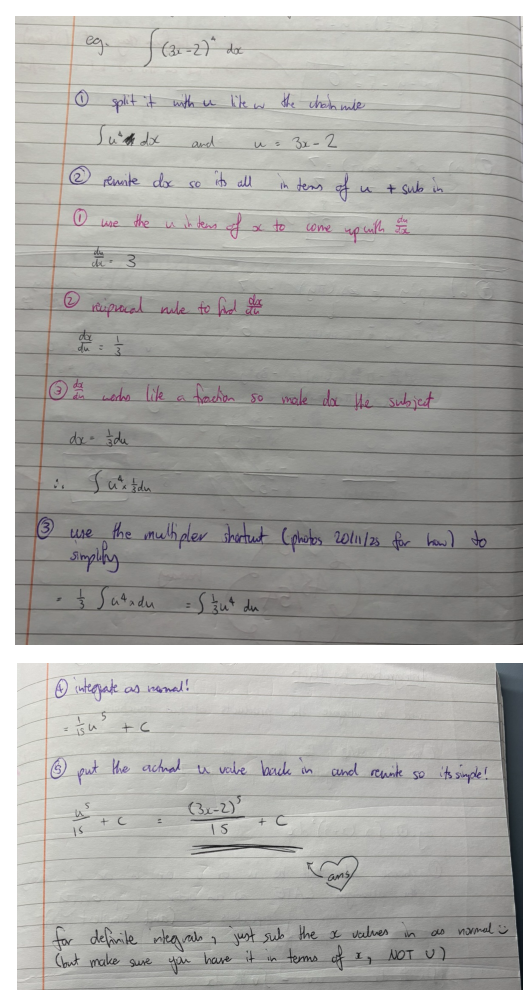 eg. ∫(3x-2)⁴ dx
① split it with u like w the chain rule
∫u⁴ dx and u = 3x-2
② rewrite dx so its all in terms of u + sub in
① use the u in terms of x to come up with du/dx
du/dx = 3
② reciprocal rule to find dx/du
dx/du = 1/3
③ dx/du works like a fraction so make dx the subject
dx = 1/3 du
∴ ∫u⁴ × 1/3 du
③ use the multiplier shortcut (photos 20/11/23 for how) to
simplify
= 1/3 ∫u⁴ × du = ∫1/3 u⁴ du
④ integrate as normal!
= 1/15 u⁵ + C
⑤ put the actual u value back in and rewrite so its simple!
u⁵/15 + C = (3x-2)⁵/15 + C
ans
for definite integrals, just sub the x values in as normal :)
(but make sure you have it in terms of x, NOT U)